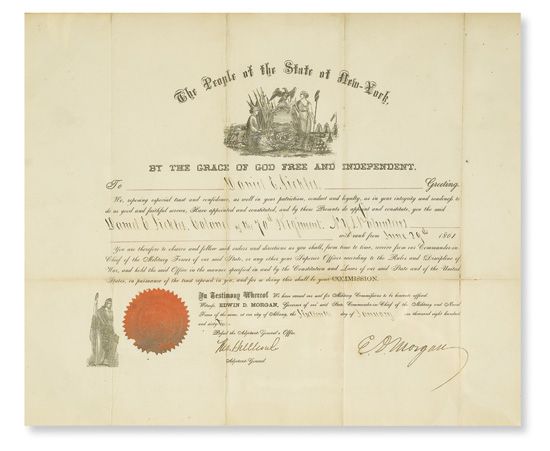 The People of the State of New-York,
BY THE GRACE OF GOD FREE AND INDEPENDENT,
To Daniel E. Sickles Greeting
We, reposing especial trust and confidence, as well in your patriotism, conduct and loyalty, as in your integrity and readiness to
do us good and faithful service, Have appointed and constituted, and by these Presents do appoint and constitute, you the said
Daniel E. Sickles, Colonel of the 70th Regiment, N.Y. Volunteers
with rank from June 29th 1861
You are therefore to observe and follow such orders and directions as you shall, from time to time, receive from our Commander-in-
Chief of the Military Forces of our said State, or any other your Superior Officer according to the Rules and Discipline of
War, and hold the said Office in the manner specified in and by the Constitution and Laws of our said State and of the United
States, in pursuance of the trust reposed in you, and for so doing this shall be your COMMISSION.
In Testimony Whereof We have caused our seal for Military Commissions to be hereunto affixed.
Witness EDWIN D. MORGAN, Governor of our said State, Commander-in-Chief of the Military and Naval
Forces of the same, at our city of Albany, the day of January in thousand eight hundred
and sixty
Passed the Adjutant General's Office,
Adjutant General
E. D. Morgan